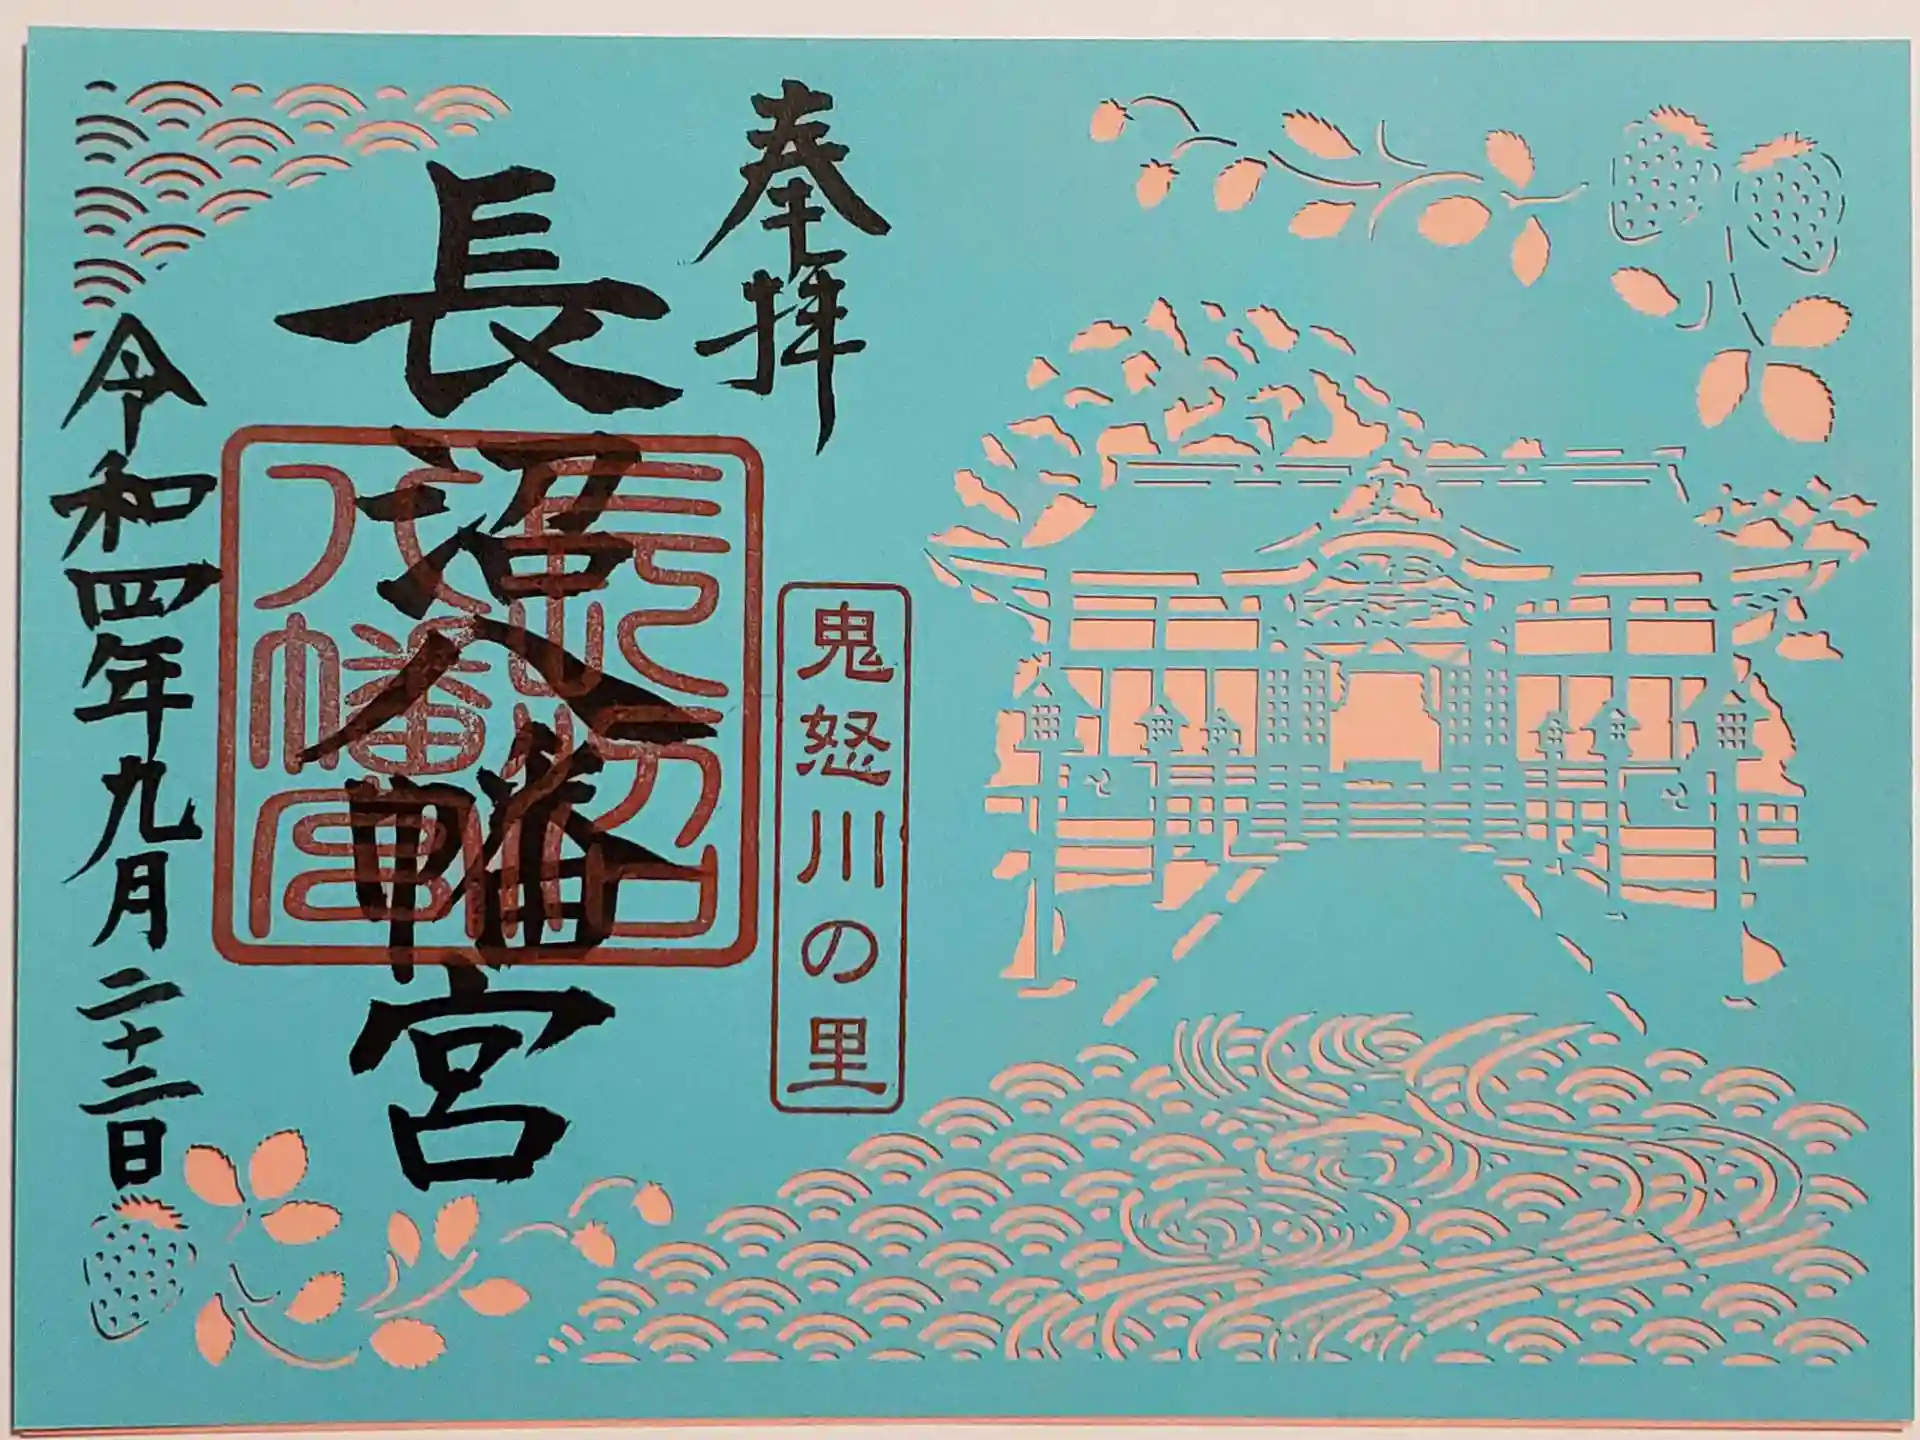 奉拝
鬼怒川の里
長沼八幡宮
長沼八幡宮
令和四年九月二十三日